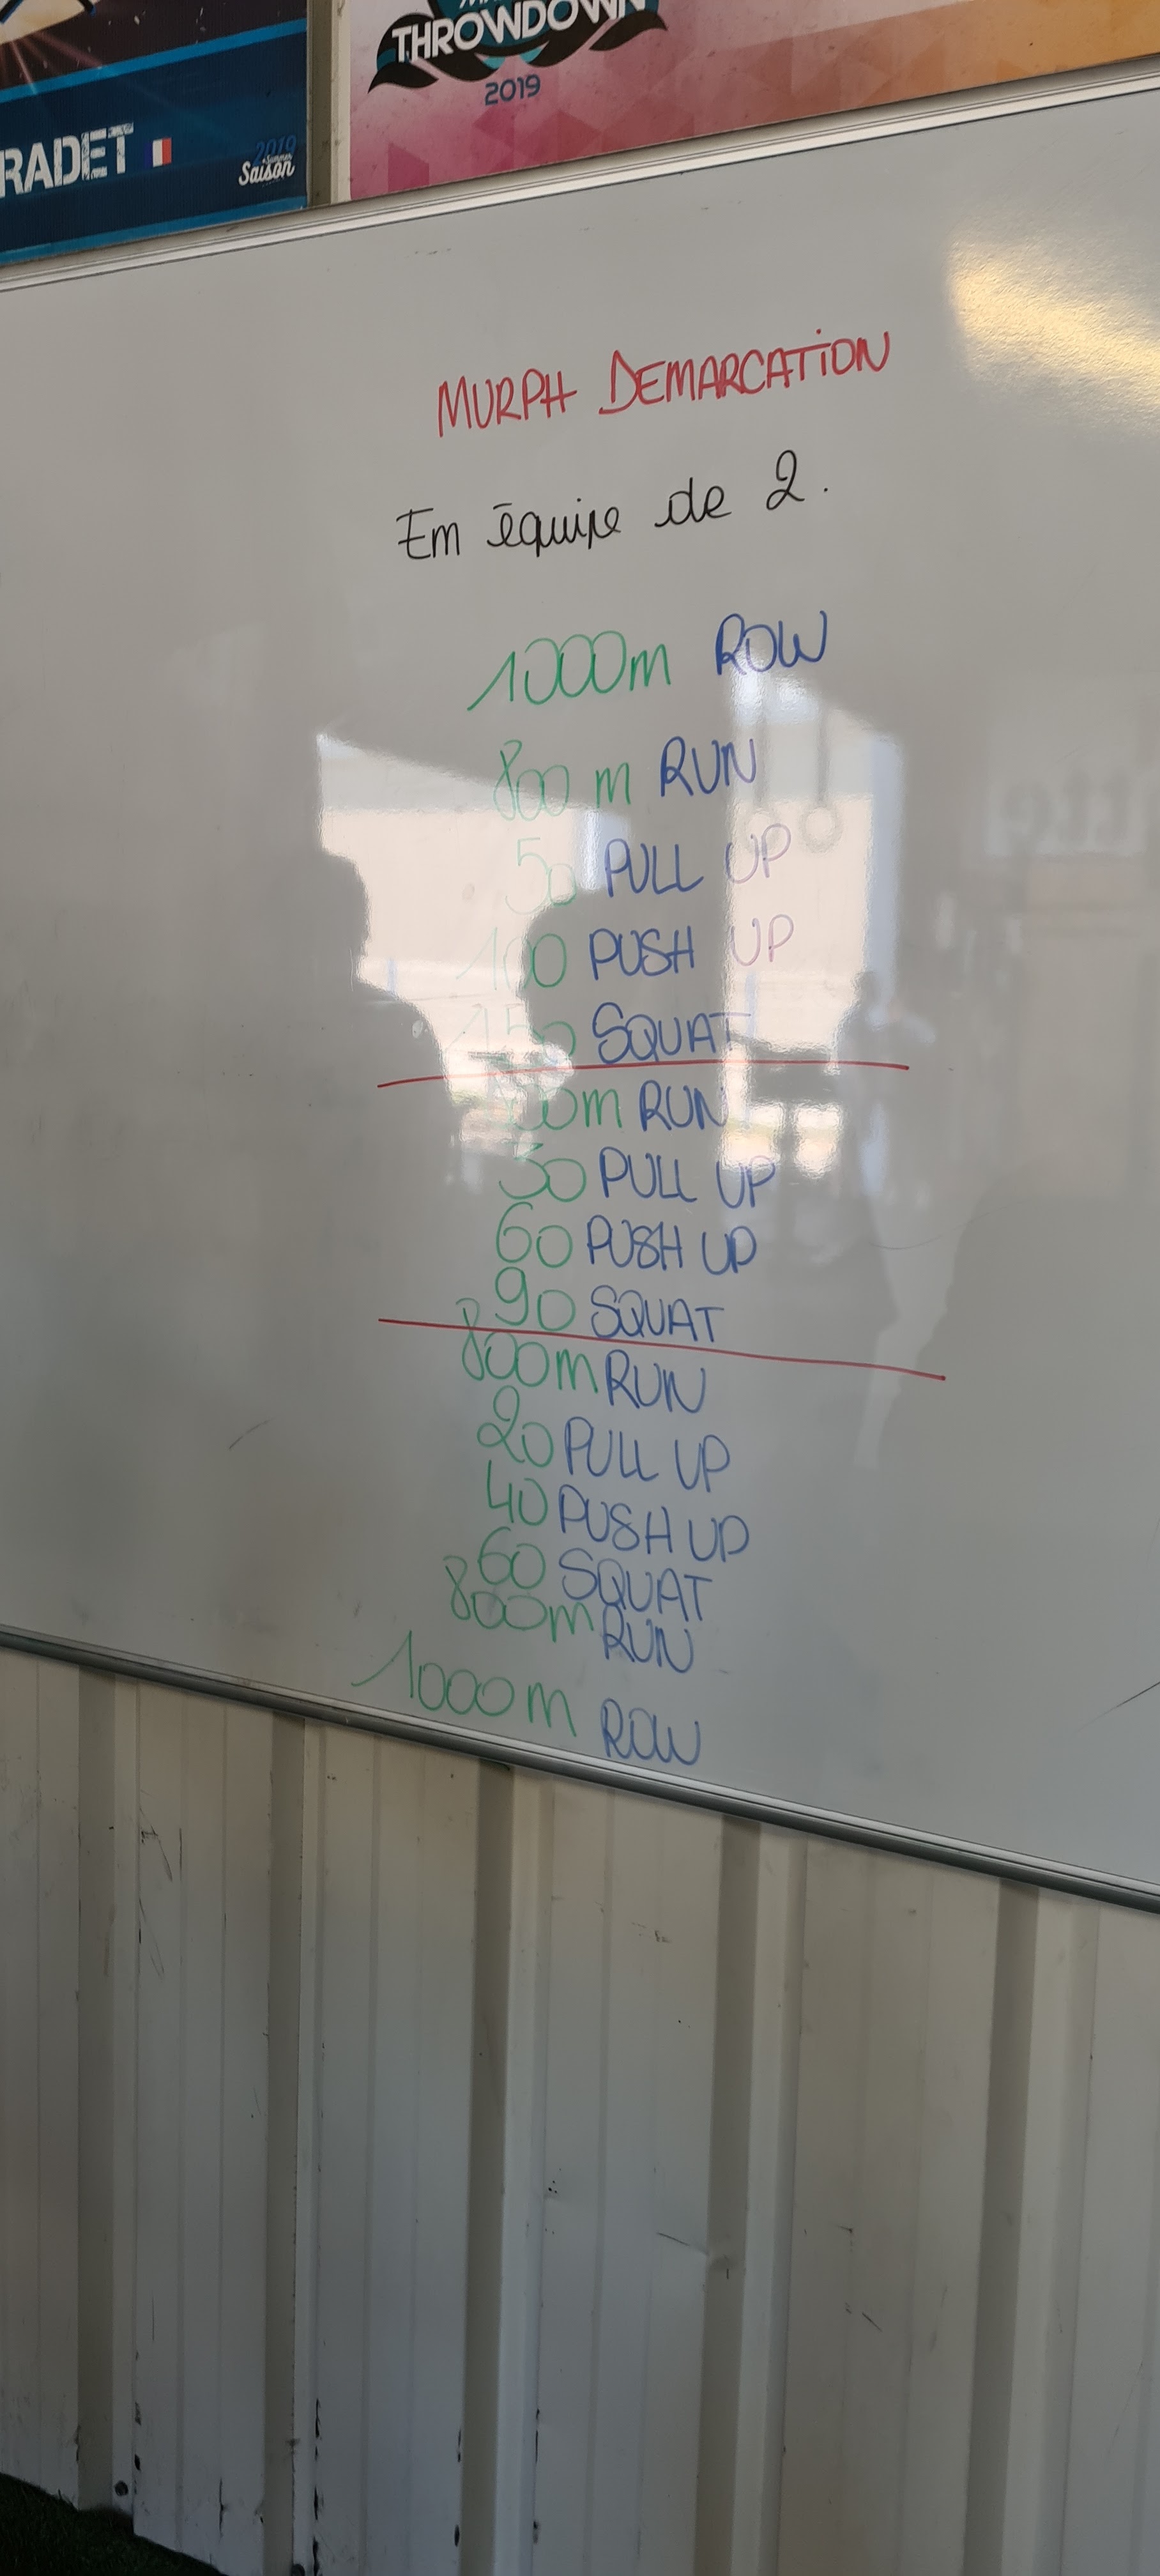 THROWDOWN
2019
RADET
2019
Summer
Saison
MURPH DEMARCATION
En équipe de 2.
1000m ROW
800m RUN
50 PULL UP
100 PUSH UP
150 SQUAT
00m RUN
30 PULL UP
60 PUSH UP
90 SQUAT
800m RUN
20 PULL UP
40 PUSH UP
60 SQUAT
800m RUN
1000m ROW